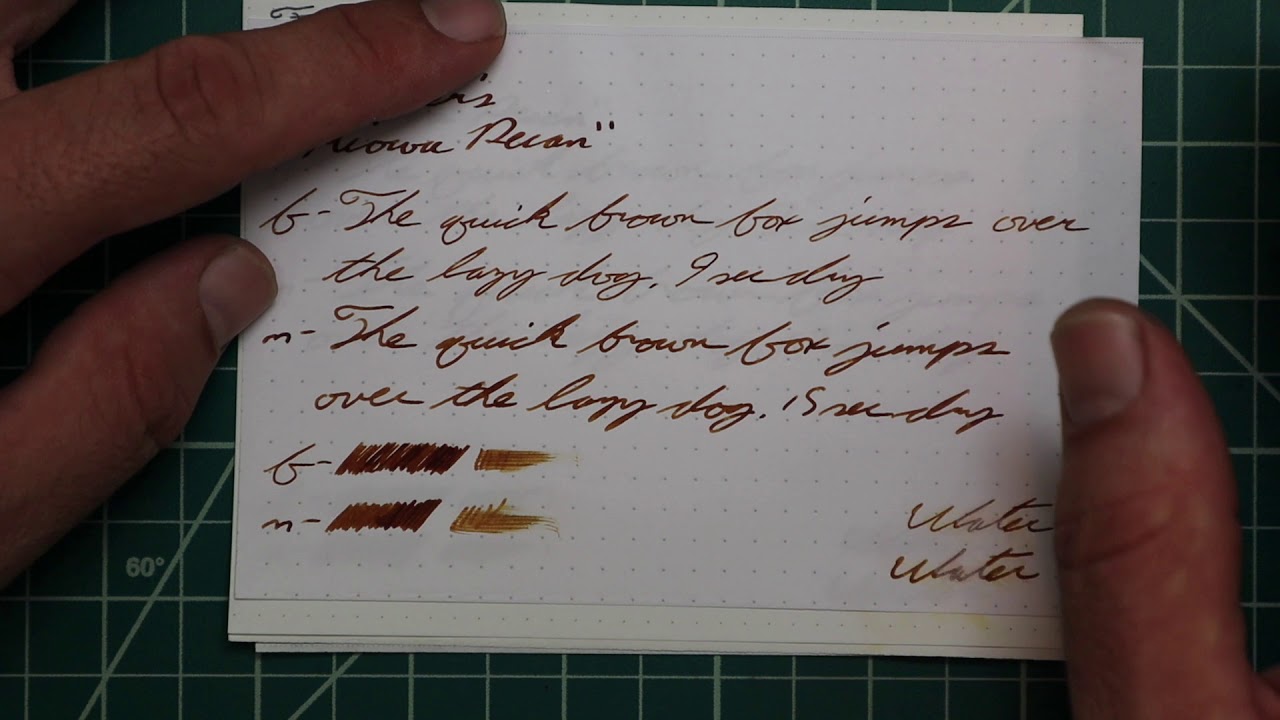 Pecan"
f - The quick brown fox jumps over
the lazy dog. 9 sec dry
m - The quick brown fox jumps
over the lazy dog. 15 sec dry
f -
m -
Water
Water
60°